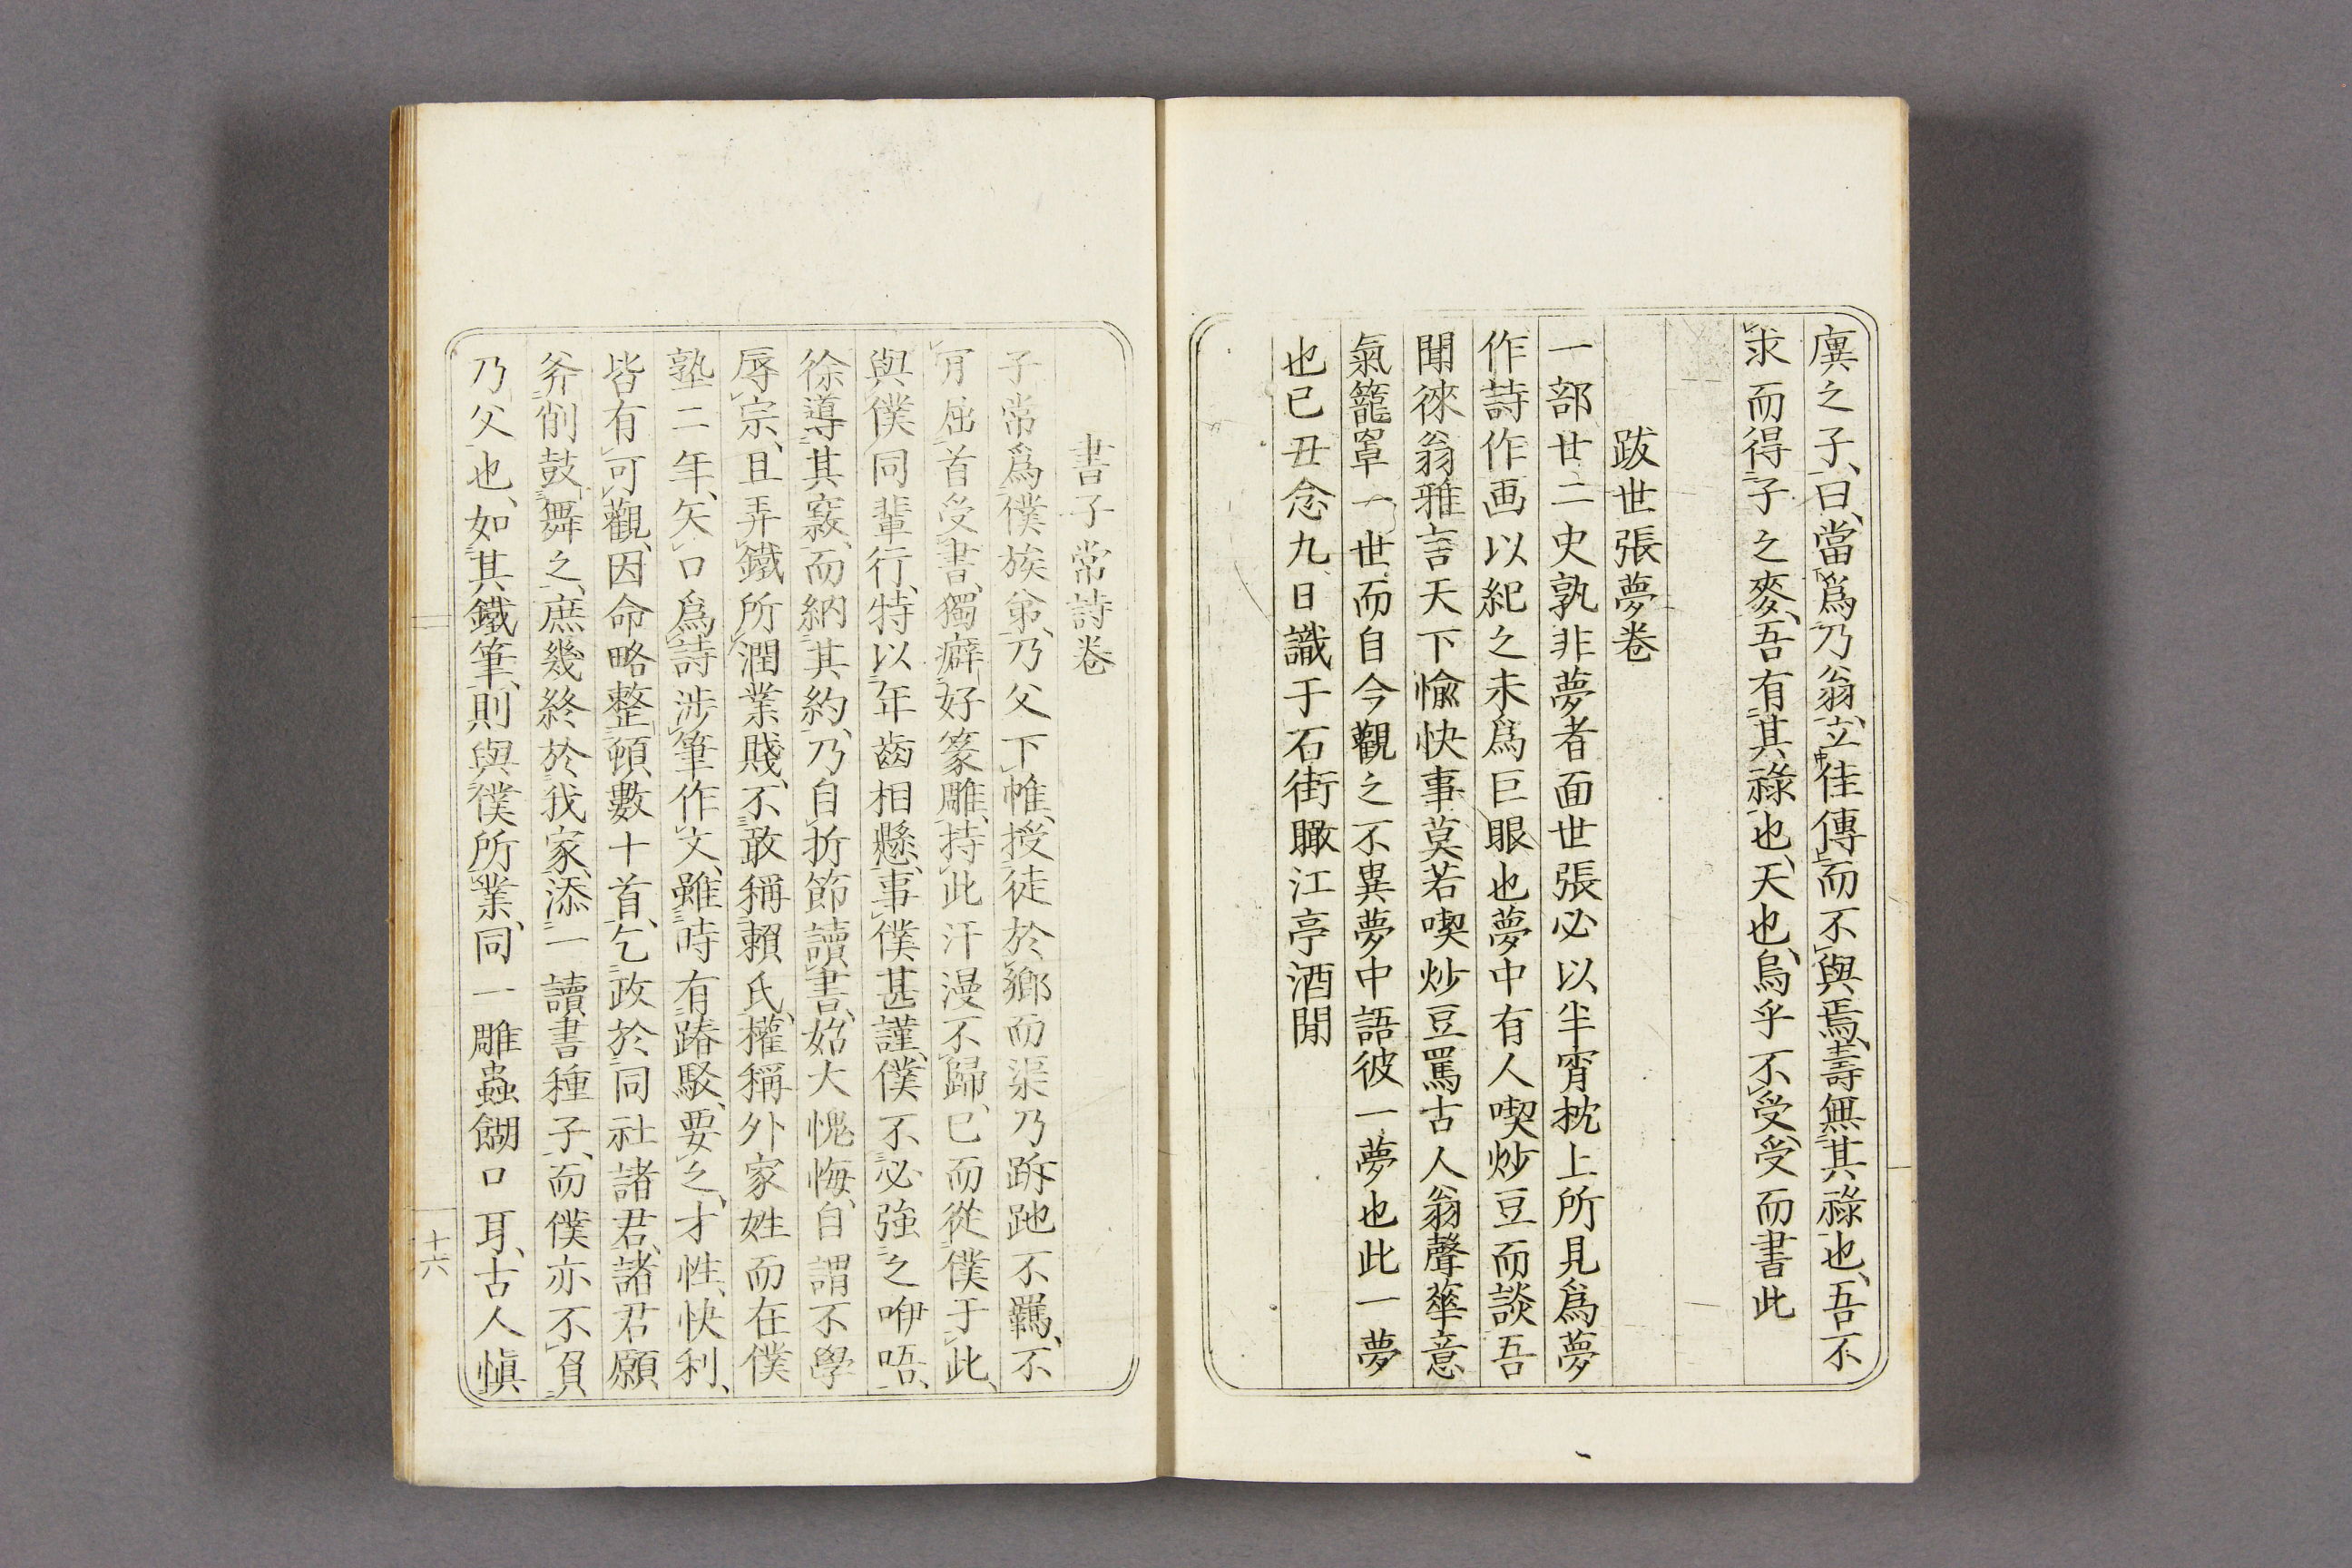 廙之子、曰、當爲乃翁立佳傳而不與焉、壽無其祿也、吾不
求而得子之麥、吾有其祿也、天也、烏乎不受受而書此
跋世張夢卷
一部廿二史孰非夢者面世張必以半宵枕上所見爲夢
作詩作画以紀之未爲巨眼也夢中有人喫炒豆而談吾
聞徠翁雅言天下愉快事莫若喫炒豆罵古人翁聲華意
氣籠罩一世而自今觀之不異夢中語彼一夢也此一夢
也已丑念九日識于石街瞰江亭酒閒
書子常詩卷
子常爲僕族弟、乃父下帷、授徒於鄉而渠乃跅跎不羈、不
肎屈首受書、獨癖好篆雕、持此汗漫不歸、已而從僕于此、
與僕同輩行、特以年齒相懸、事僕甚謹、僕不必強之咿唔、
徐導其竅、而納其約、乃自折節讀書、始大愧悔、自謂不學
辱宗、且弄鐵所潤業賤、不敢稱賴氏、權稱外家姓而在僕
塾二年、矢口爲詩涉筆作文、雖時有踳駁、要之、才性快利、
皆有可觀、因命略整頓數十首、乞政於同社諸君、諸君願
斧削鼓舞之、庶幾終於我家、添一讀書種子、而僕亦不負
乃父也、如其鐵筆、則與僕所業、同一雕蟲餬口耳、古人愼
十六